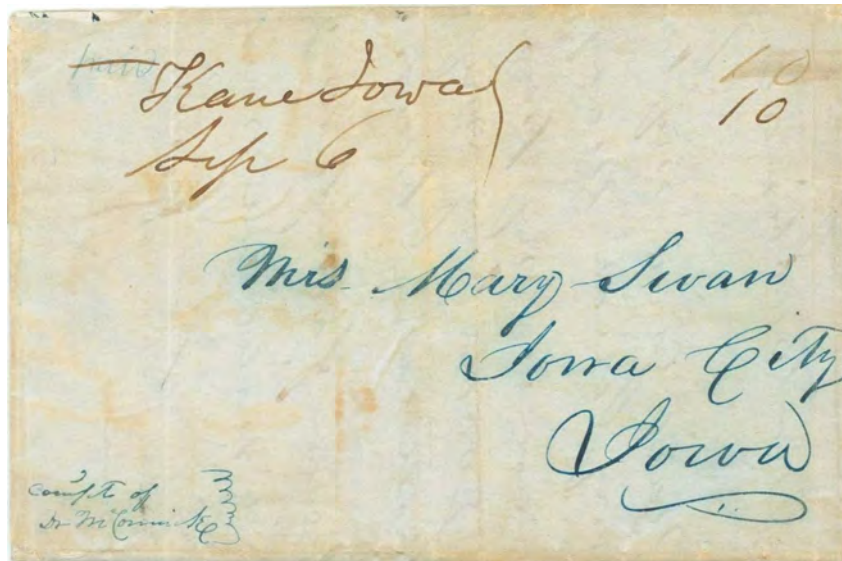 Paid
Kane Iowa 10
Sep 6 10
Mrs. Mary Swan
Iowa City
Iowa
Compts of
Dr McCormick